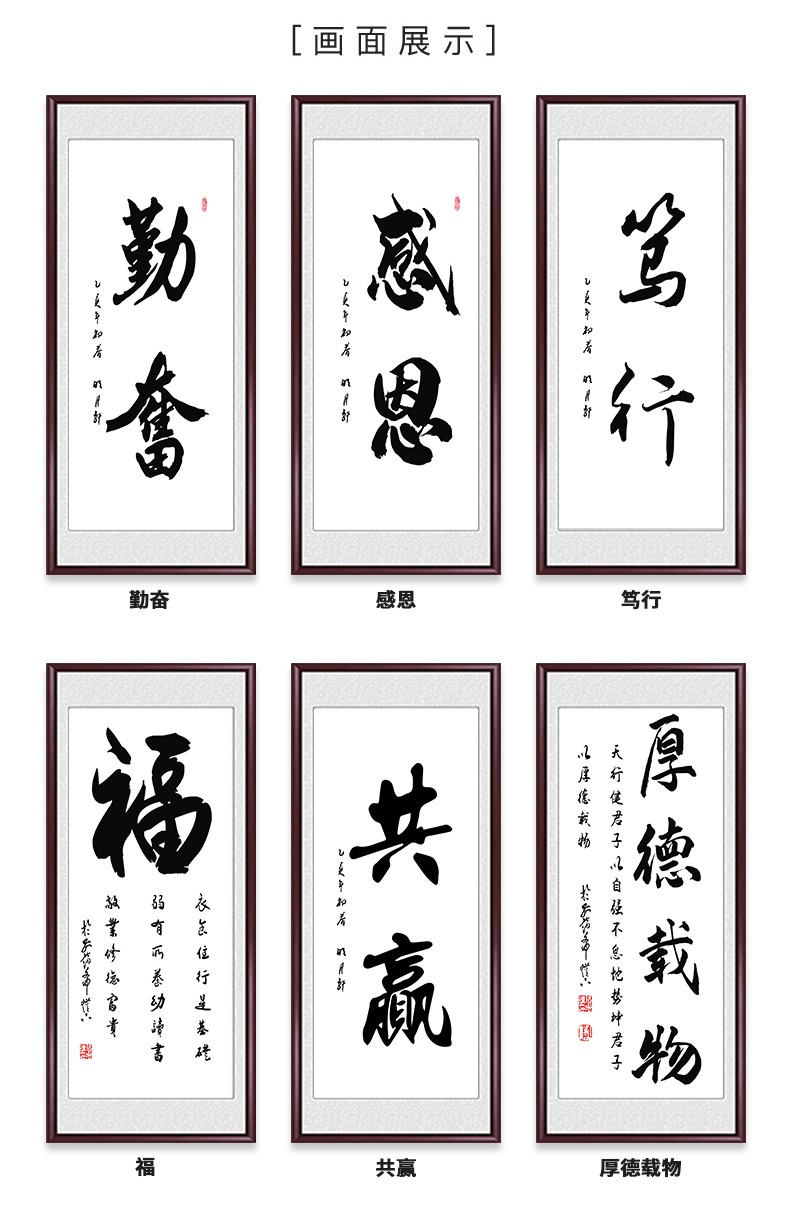 [画面展示]
勤奋
乙亥年初春 明月郭
感恩
乙亥年初春 明月郭
笃行
乙亥年初春 明月郭
勤奋
感恩
笃行
福
衣食住行是基础
弱有所养幼读书
敬业修德富贵
共赢
乙亥年初春 明月郭
厚德载物
天行健君子以自强不息地势坤君子
以厚德载物
福
共赢
厚德载物